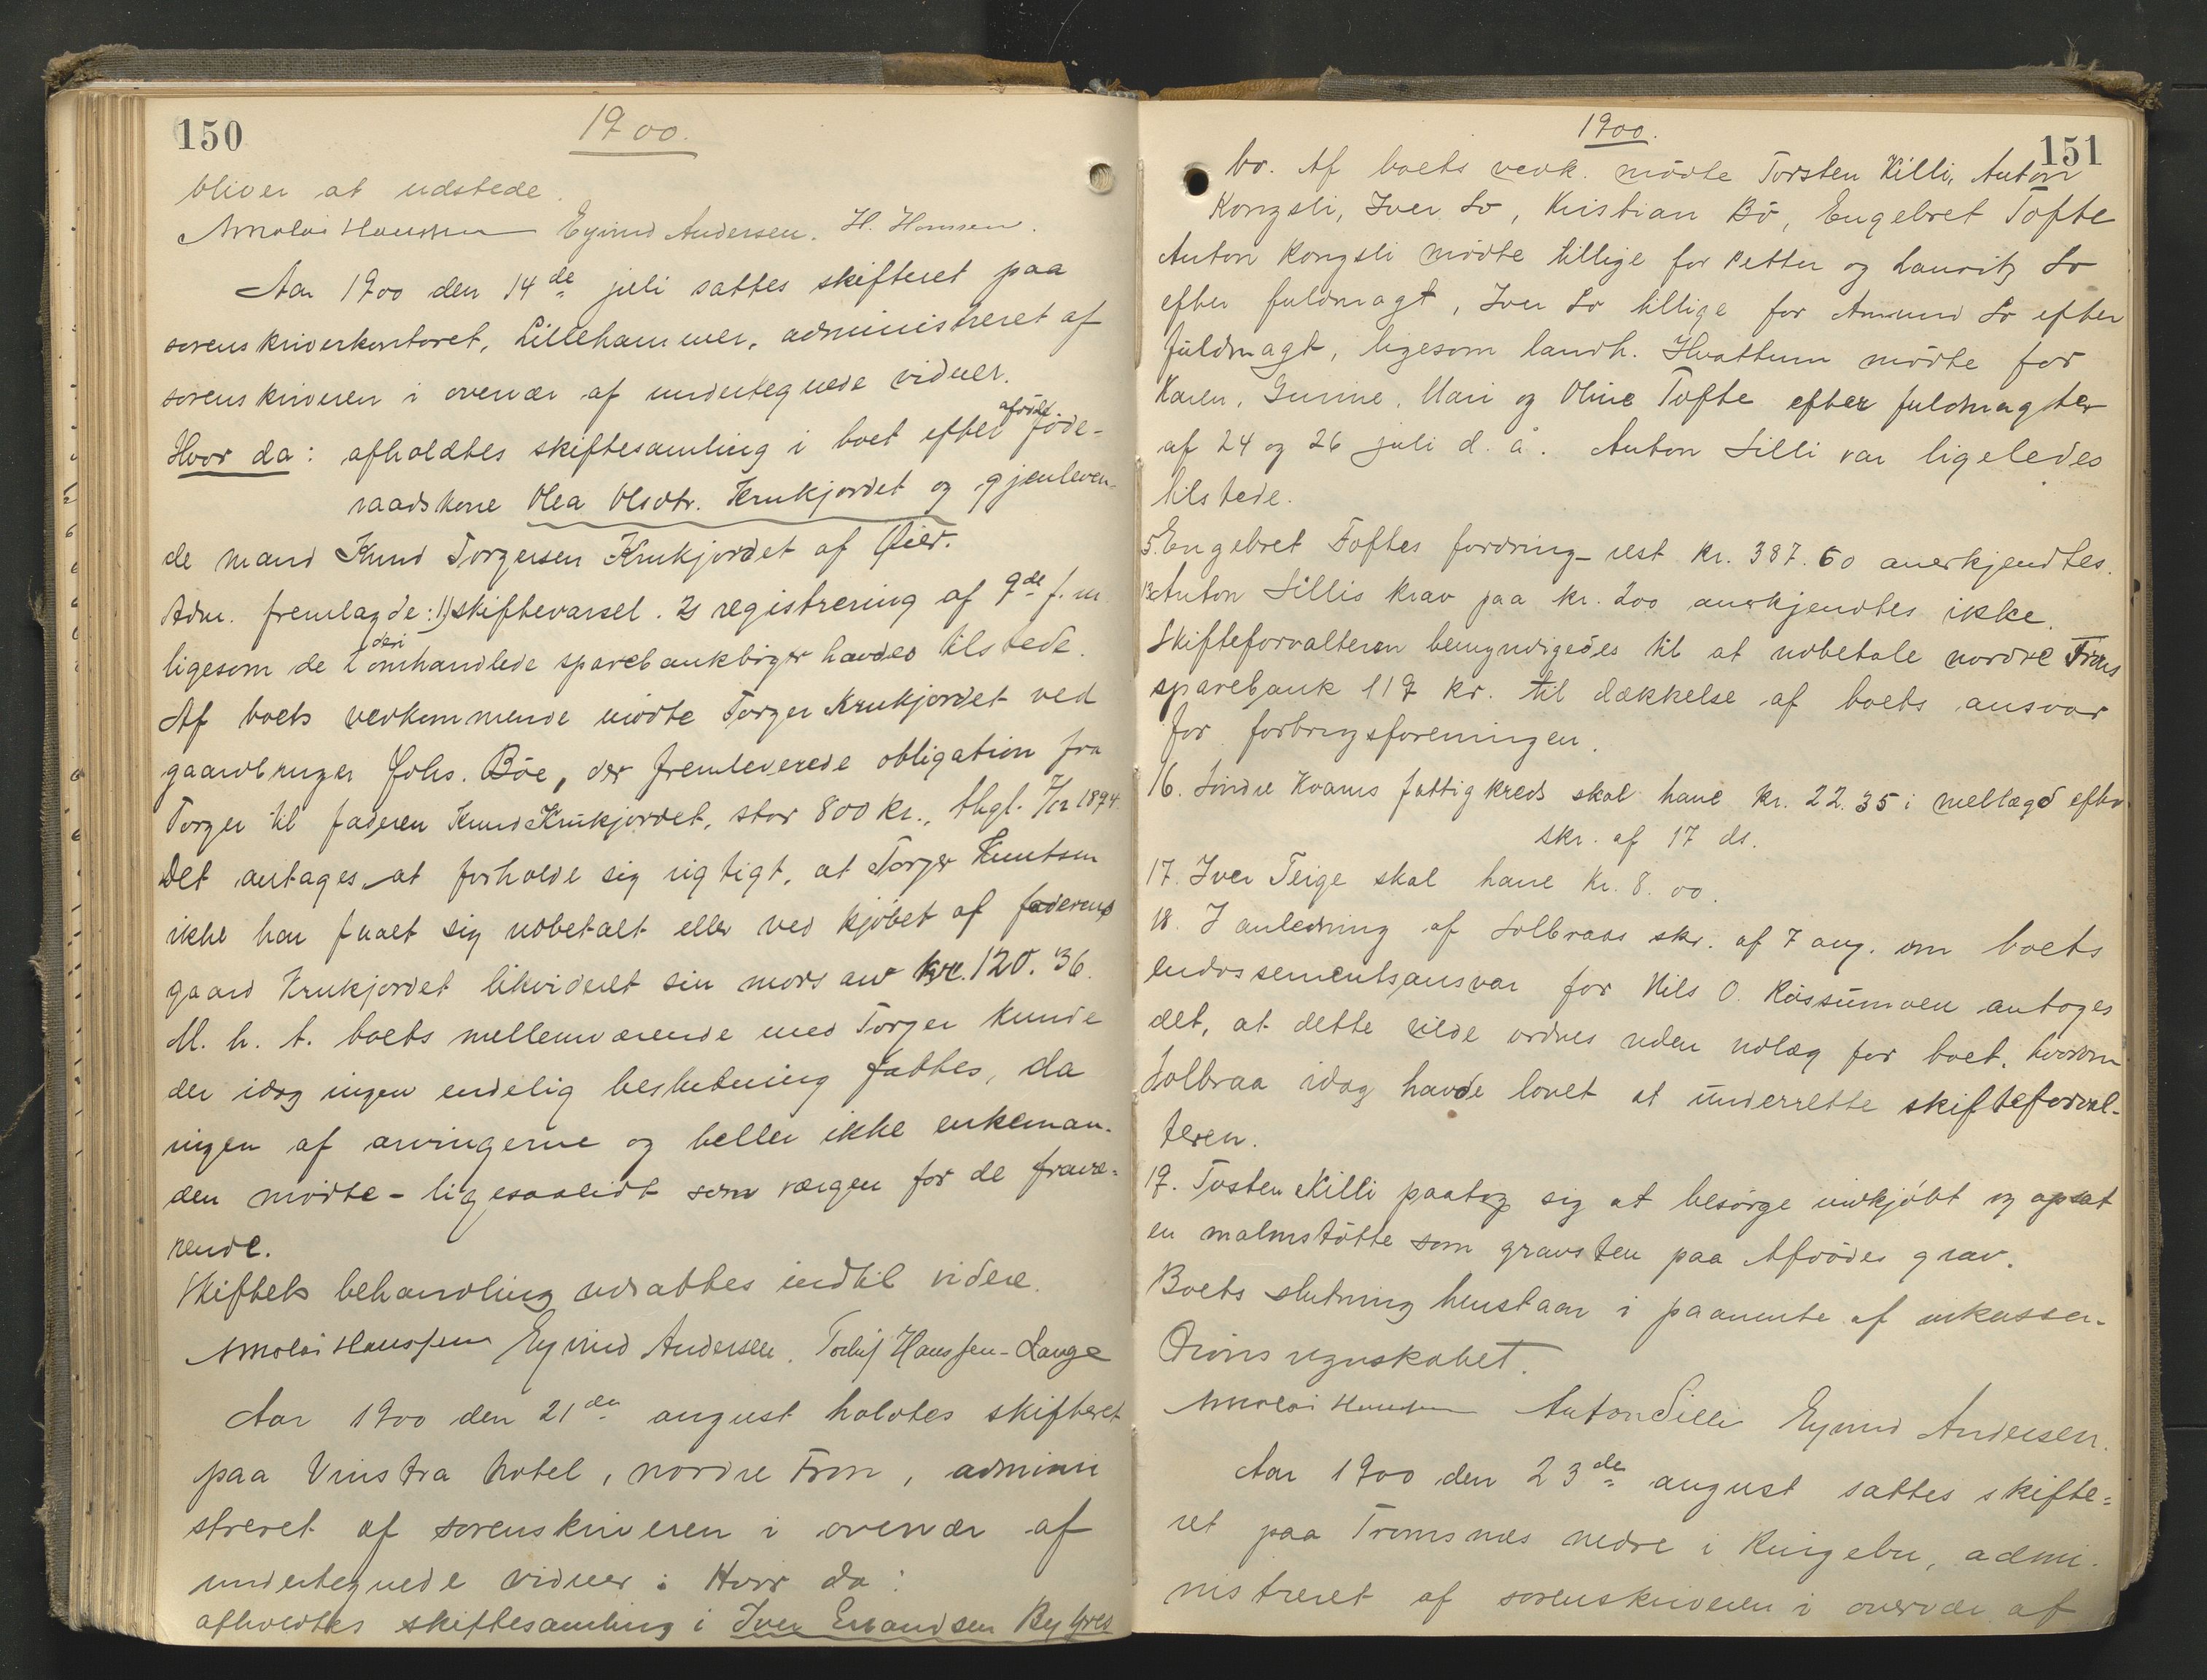 150
1900.
bliver at udstede.
Nicolai Hanssen Eyvind Andersen. H. Hansen.
Aar 1900 den 14de juli sattes skifteret paa
sorenskriverkontoret, Lillehammer, administreret af
sorenskriveren i overvær af undertegnede vidner.
Hvor da: afholdtes skiftesamling i boet efter afdøde føde-
raadskone Olea Olsdtr. Krukjordet og gjenleven-
de mand Knud Torgersen Krukjordet af Øier.
Adm. fremlagde: 1) skiftevarsel. 2) registrering af 9de f. m.
ligesom de deri omhandlede sparebankbøger havdes tilstede.
Af boets vedkommende mødte Torger Krukjordet ved
gaardbruger Johs. Bøe, der fremleverede obligation fra
Torger til faderen Knud Krukjordet, stor 800 kr., thgl. 7/12 1894.
Det antages at forholde sig rigtigt, at Torger Knutsen
ikke har faaet sig udbetalt eller ved kjøbet af faderens
gaard Krukjordet likvideret sin mors arv kr. 120.36.
M. h. t. boets mellemværende med Torger kunde
der idag ingen endelig beslutning fattes, da
ingen af arvingerne og heller ikke enkeman-
den mødte - ligesaalidt som vergen for de fravæ-
rende.
Skiftets behandling udsattes indtil videre.
Nicolai Hanssen Eyvind Andersen. Hanssen-Lange
Aar 1900 den 21de august holdtes skifteret
paa Vinstra hotel, nordre Fron, admini
streret af sorenskriveren i overvær af
undertegnede vidner: Hvor da:
afholdtes skiftesamling i Iver Erlandsen Bytres
1900.
151
bo. Af boets vedk. mødte Torsten Killi, Anton
Kongsli, Iver Lo, Kristian Bø, Engebret Tofte
Anton Kongsli mødte tillige for Petter og Lauritz Lo
efter fuldmagt, Iver Lo tillige for Amund Lo efter
fuldmagt, ligesom landh. Hvattum mødte for
Karen, Gunine, Mari og Oline Tofte efter fuldmagter
af 24 og 26 juli d. å. Anton Silli var ligeledes
tilstede.
5. Engebret Toftes fordring - rest kr. 387.60 anerkjendtes.
13. Anton Sillis krav paa kr. 200 anerkjendtes ikke.
Skifteforvalteren bemyndigedes til at udbetale nordre Frons
sparebank 119 kr. til dækkelse af boets ansvar
for forbrugsforeningen.
16. Søndre Kvams fattigkreds skal have kr. 22.35 i mellægd efter
skr. af 17 ds.
17. Iver Teige skal have kr. 8.00.
18. I anledning af Solbraas skr. af 7 aug. om boets
endossementsansvar for Nils O. Rossumoen antoges
det, at dette vilde ordnes uden udlæg for boet, hvorom
Solbraa idag havde lovet at underrette skifteforval-
teren.
19. Tosten Killi paatog sig at besørge indkjøbt og opsat
en malmstøtte som gravsten paa Afdødes grav.
Boets slutning henstaar i paavente af inkassa-
tions regnskabet.
Nicolai Hanssen Anton Silli Eyvind Andersen.
Aar 1900 den 23de august sattes skifte-
ret paa Tromsnes nedre i Ringebu, admi-
nistreret af sorenskriveren i overvær af